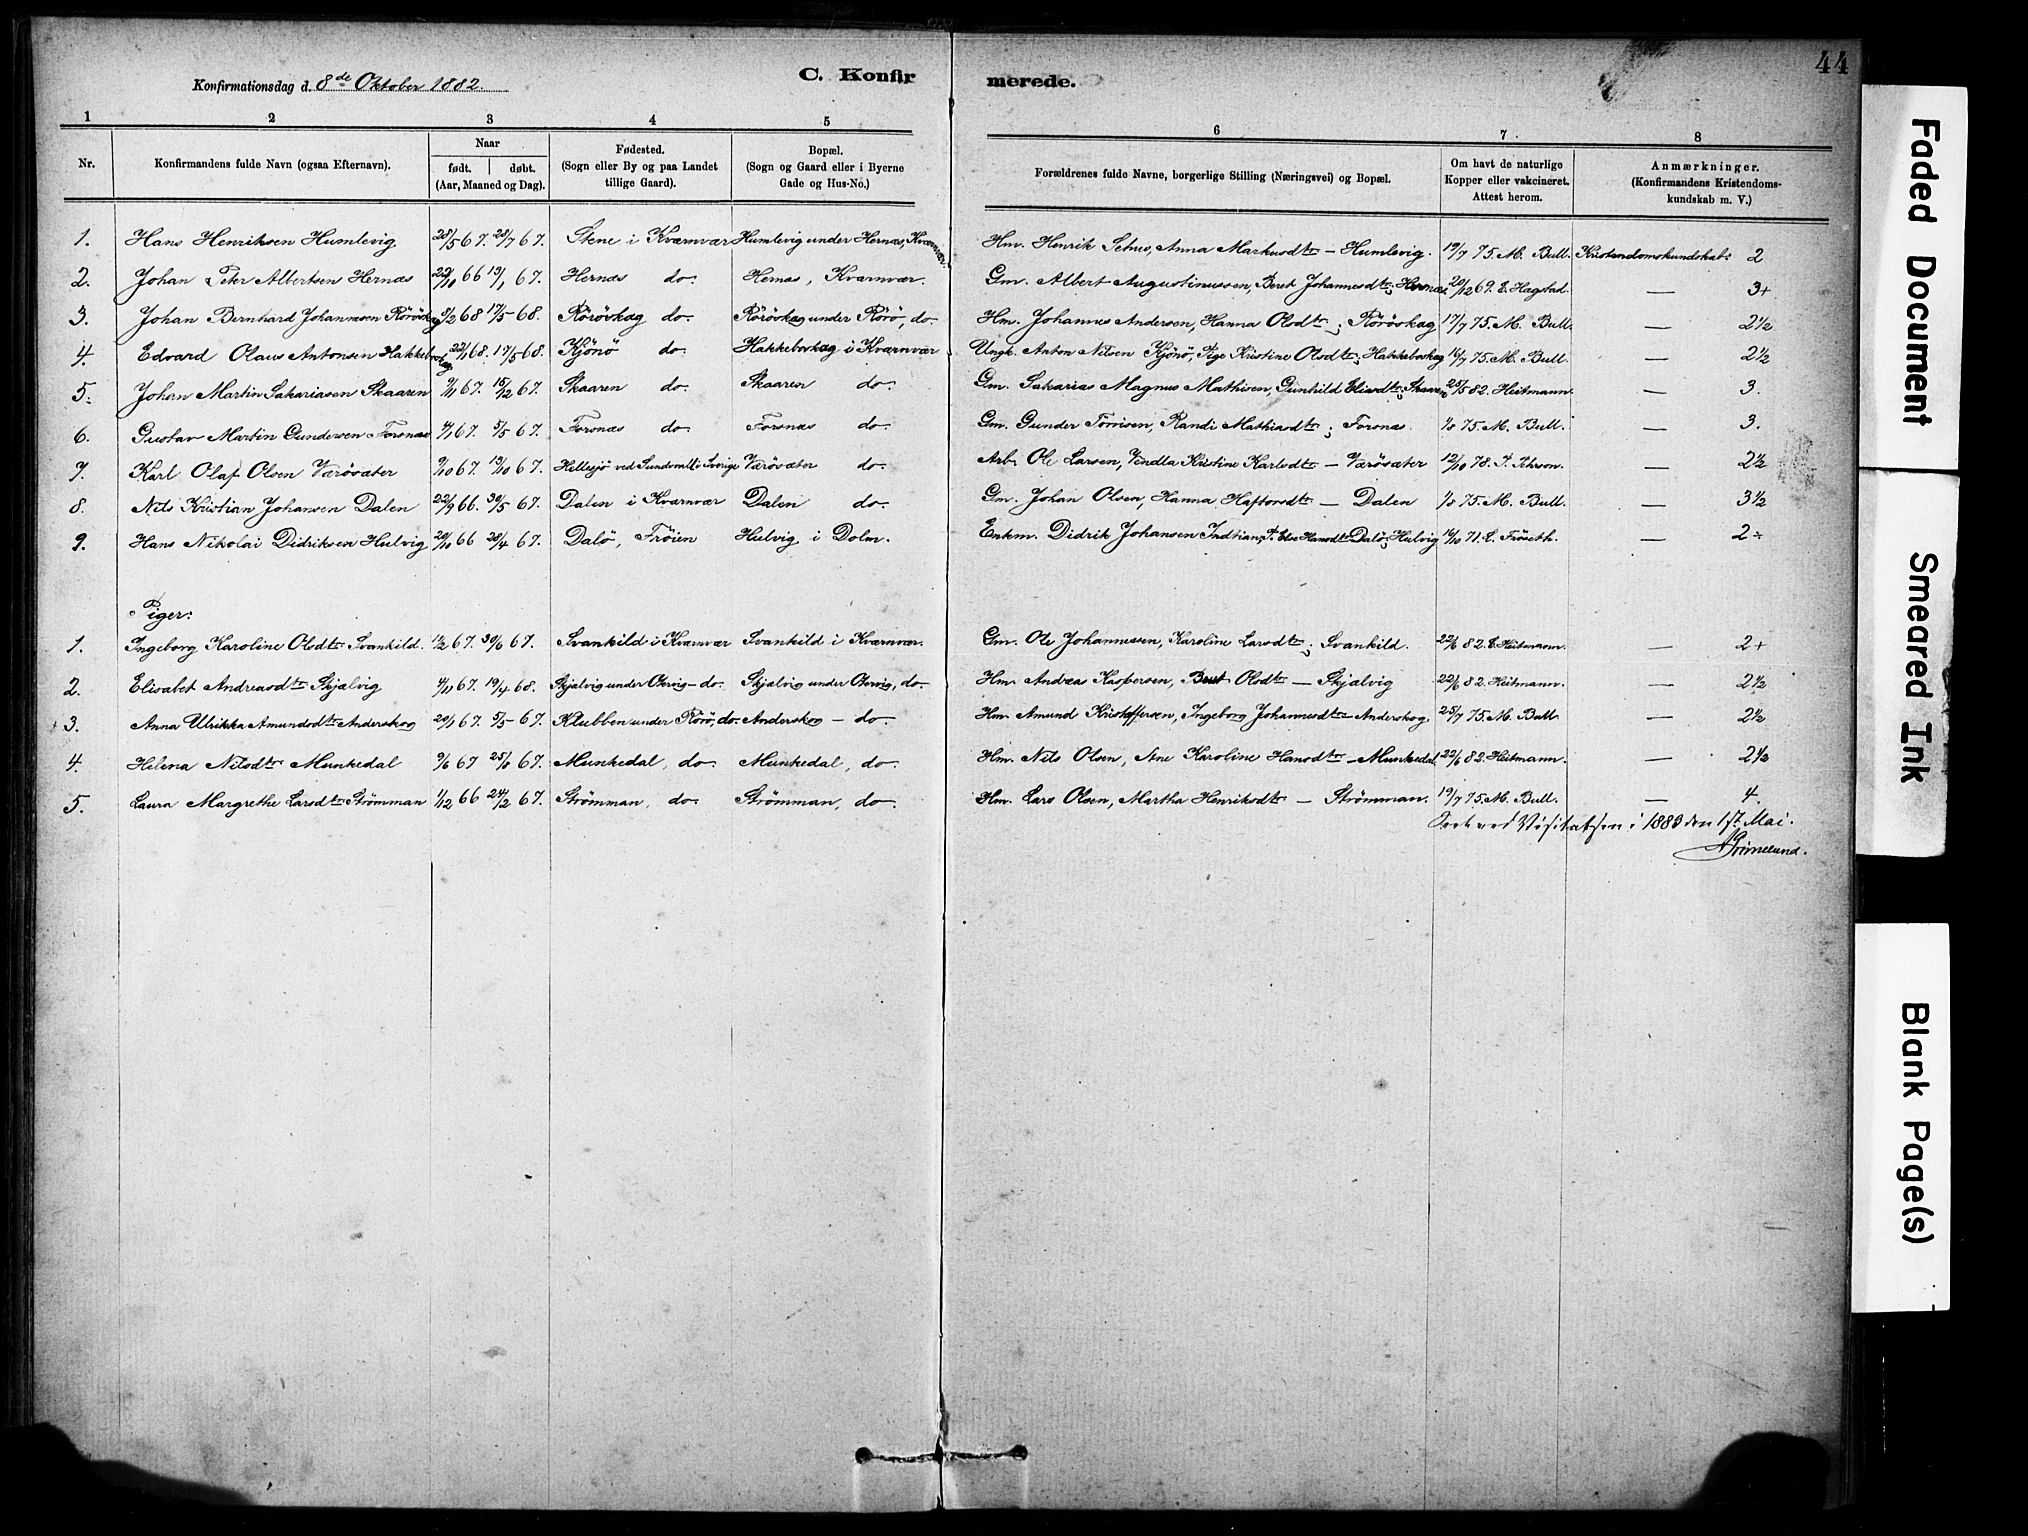 44
Konfirmationsdag d. 8de Oktober 1882.
C. Konfir merede.
1 2 3 4 5 6 7. 8
Nr.
Konfirmandens fulde Navn (ogsaa Efternavn).
Naar
født. døbt.
(Aar, Maaned og Dag).
Fødested.
(Sogn eller By og paa Landet
tillige Gaard).
Bopæl.
(Sogn og Gaard eller i Byerne
Gade og Hus-No.)
Forældrenes fulde Navne, borgerlige Stilling (Næringsvei) og Bopæl.
Om havt de naturlige
Kopper eller vakcineret.
Attest herom.
Anmærkninger.
(Konfirmandens Kristendoms-
kundskab m. V.)
1. Hans Henriksen Humlevig 28/5 67. 28/7 67. Stene i Kværnvær Humlevig under Hernæs, Kværnvær. Hm. Henrik Schus, Anna Markusdtr — Humlevig. 19/7 75. M. Bull. Kristendomskundskab: 2
2. Johan Peter Albertsen Hernæs 22/10 66 13/1 67. Hernæs do. Hernæs, Kværnvær. Gm. Albert Augustinussen, Beret Johannesdtr; Hernæs 20/12 69. E. Hægstad. — 3+
3. Johan Bernhard Johannesen Röröskag 9/2 68 17/5 68. Röröskag do. Röröskag under Rörö, do. Hm. Johannes Andersen, Hanna Olsdtr; Röröskag 17/7 75. M. Bull. — 2½
4. Edvard Olaus Antonsen Hakkeboskag 22/1 68. 17/5 68. Kjönö do. Hakkeboskag i Kværnvær Ungk. Anton Nilsen Kjönö, Pige Kristine Olsdtr; Hakkeboskag 16/7 75. M. Bull. — 2½
5. Johan Martin Sakariasen Skaaren 9/11 67. 15/12 67. Skaaren do. Skaaren do. Gm. Sakarias Magnus Mathisen, Gunhild Eliasdtr; Skaaren 25/5 82. Heitmann. — 3.
6. Gustav Martin Gundersen Forsnæs 4/1 67. 5/5 67. Forsnæs do. Forsnæs do. Gm. Gunder Tönisen, Randi Mathiasdtr; Forsnæs. 1/8 75. M. Bull. — 3.
7. Karl Olaf Olsen Værösæter 9/10 67. 13/10 67. Hellesjö ved Sundsvall i Sverige Værösæter do. Arb. Ole Larsen, Vendla Kristine Karlsdtr — Værösæter 12/10 78. P. Pehrson. — 2½
8. Nils Kristian Johansen Dalen 22/9 66. 30/5 67. Dalen i Kværnvær Dalen do. Gm. Johan Olsen, Hanna Haftorsdtr — Dalen 1/8 75. M. Bull. — 3½
9. Hans Nikolai Didriksen Hulvig 20/10 66 28/4 67. Dalö, Fröien Hulvig i Dolm. Enkm. Didrik Johansen Indtian, P. Else Hansdtr Dalö; Hulvig 16/10 71. L. Fröseth. — 2÷
Piger:
1. Ingeborg Karoline Olsdtr Svankild. 12/2 67. 30/6 67. Svankild i Kværnvær Svankild i Kværnvær. Gm. Ole Johannessen, Karoline Larsdtr; Svankild. 22/6 82. E. Heitmann. — 2+
2. Elisabet Andreasdtr Skjælvig 4/11 67. 19/4 68. Skjælvig under Ofervig – do. Skjælvig under Ofervig, do. Hm. Andreas Kaspersen, Beret Olsdtr — Skjælvig 22/6 82. Heitmann. — 2½
3. Anna Ulrikka Amundsdtr Anderskog 20/1 67. 5/5 67. Klubben under Rörö, do. Anderskog – do. Hm. Amund Kristoffersen, Ingeborg Johannesdtr – Anderskog 25/7 75. M. Bull — 2½
4. Helena Nilsdtr Munkedal 9/6 67 25/8 67. Munkedal, do. Munkedal, do. Hm. Nils Olsen, Ane Karoline Hansdtr – Munkedal. 22/6 82. Heitmann. — 2½
5. Laura Margrethe Larsdtr Strömman 1/12 66 24/2 67. Strömman, do. Strömman, do. Hm. Lars Olsen, Martha Henriksdtr — Strömman. 19/7 75. M. Bull. — 4.
ved Visitatsen i 1883 den 1ste Mai.
Grimelund.
Faded Document
Smeared Ink
Blank Page(s)